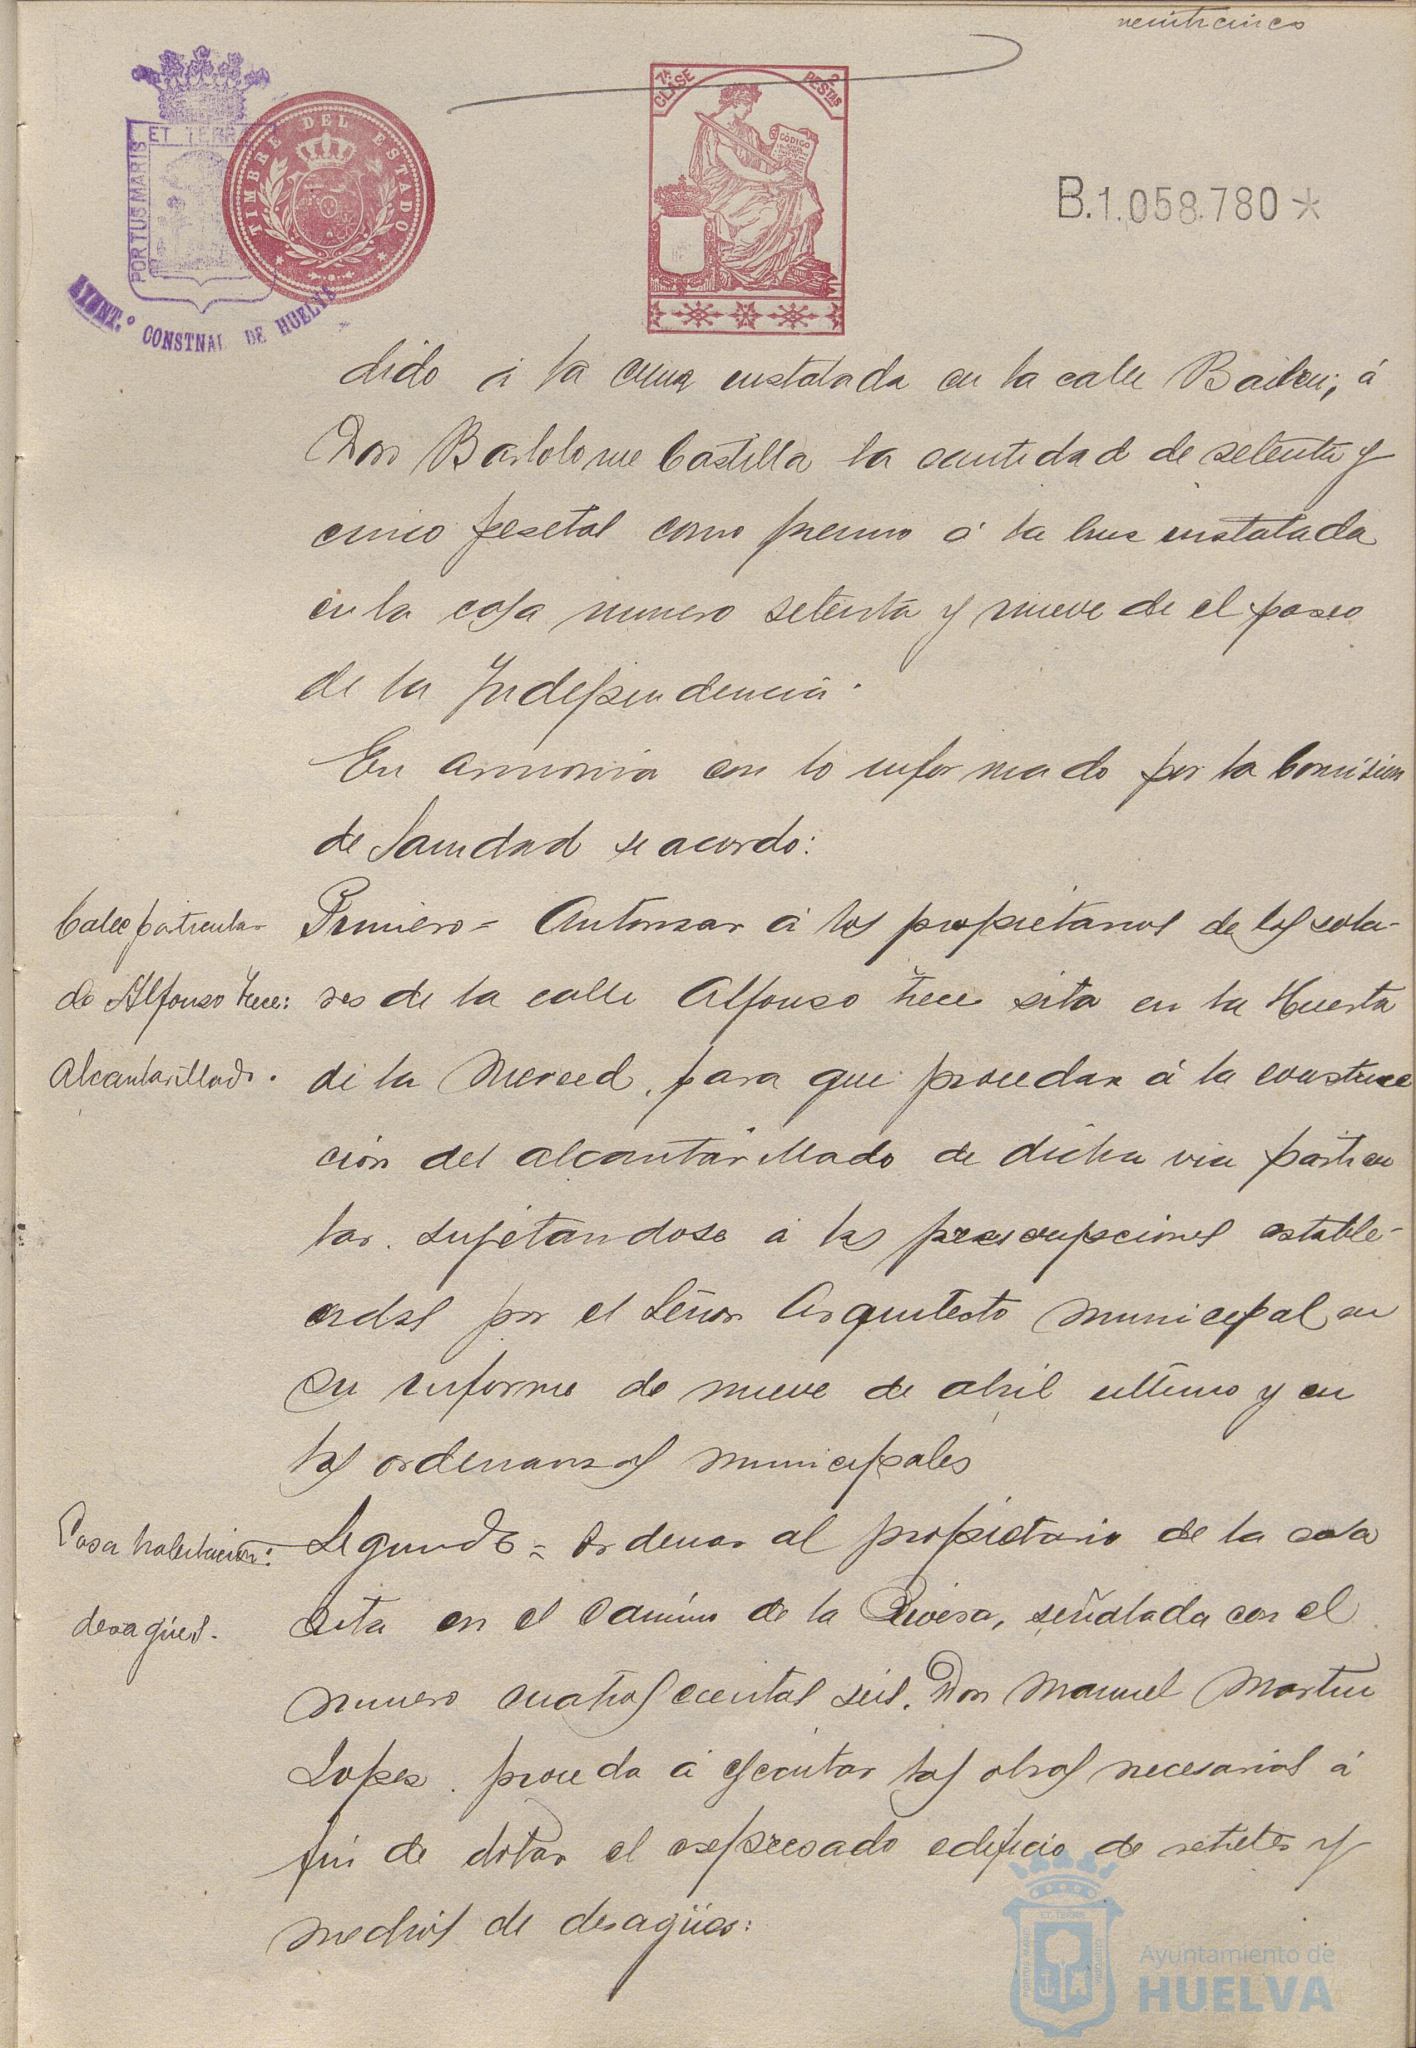 veinticinco
7ª CLASE
2 PESTAS
CÓDIGO
TIMBRE DEL ESTADO
PORTUS MARIS
ET TERR
AYUNT.º CONSTNAL DE HUELVA
B.1.058.780*
dido á la cruz instalada en la calle Bailen; á
Don Bartolome Castilla la cantidad de setenta y
cinco pesetas como premio á la cruz instalada
en la casa numero setenta y nueve de el paseo
de la Independencia.
En armonia con lo informado por la Comision
de Sanidad se acordo:
Calle particular
de Alfonso trece:
alcantarillado.
Primero = Autorizar á los propietarios de los sola-
res de la calle Alfonso trece sita en la Huerta
de la Merced, para que procedan á la construc
ción del alcantarillado de dicha via particu
lar. sujetandose á las prescripciones estable-
cidas por el Señor Arquitecto municipal en
su informe de nueve de abril ultimo y en
las ordenanzas municipales
Casa habitacion:
desagües.
Segundo = Ordenar al propietario de la casa
sita en el Camino de la Rivera, señalada con el
numero cuatrocientos seis, Don Manuel Martin
Lopez. proceda á ejecutar las obras necesarias á
fin de dotar el expresado edificio de retretes y
medios de desagües:
Ayuntamiento de
HUELVA